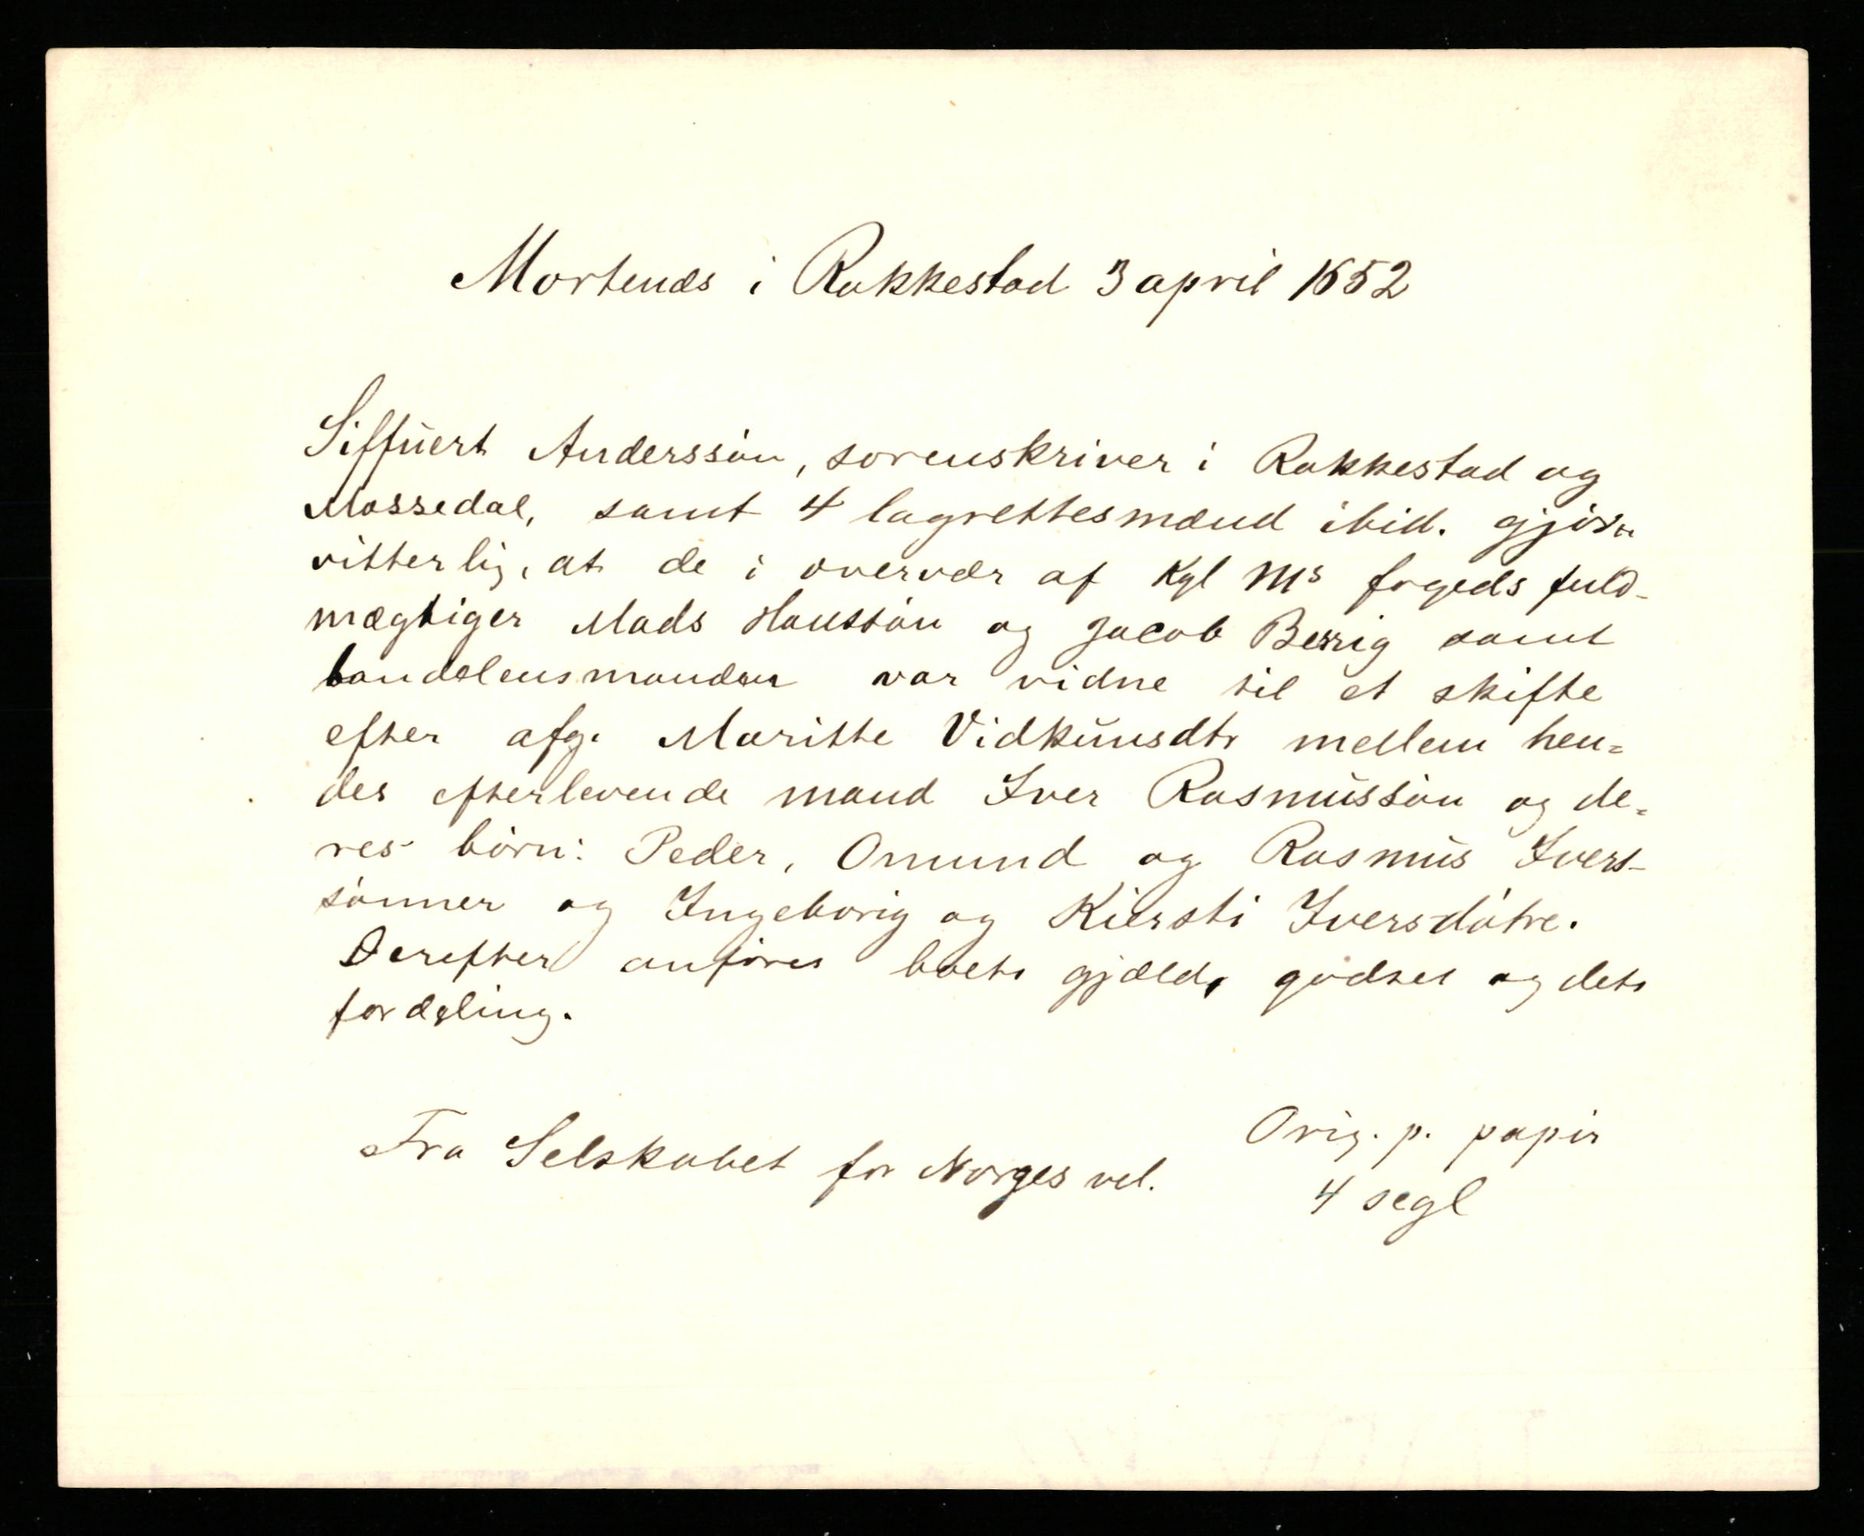 Mortenæs i Rakkestad 3 april 1652
Siffuert Anderssøn, sorenskriver i Rakkestad og
Mossedal, samt 4 lagrettesmænd ibid. gjör
vitterlig, at de i overvær af Kgl Ms fogeds fuld-
mægtiger Mads Hanssøn og Jacob Berrig samt
bondelensmanden var vidne til et skifte
efter afg. Maritte Vidkunsdtr mellem hen=
des efterlevende mand Iver Rasmussøn og de=
res børn: Peder, Omund og Rasmus Ivers-
sønner og Ingeborig og Kiersti Iversdøtre.
Derefter anføres boets gjæld, godset og dets
fordeling.
Orig. p. papir
Fra Selskabet for Norges vel.
4 segl